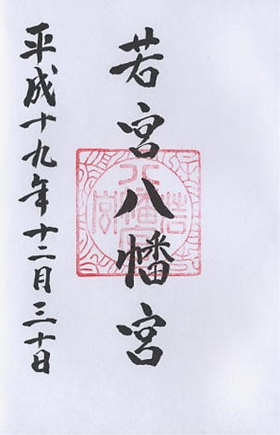 若宮八幡宮
平成十九年十二月三十日